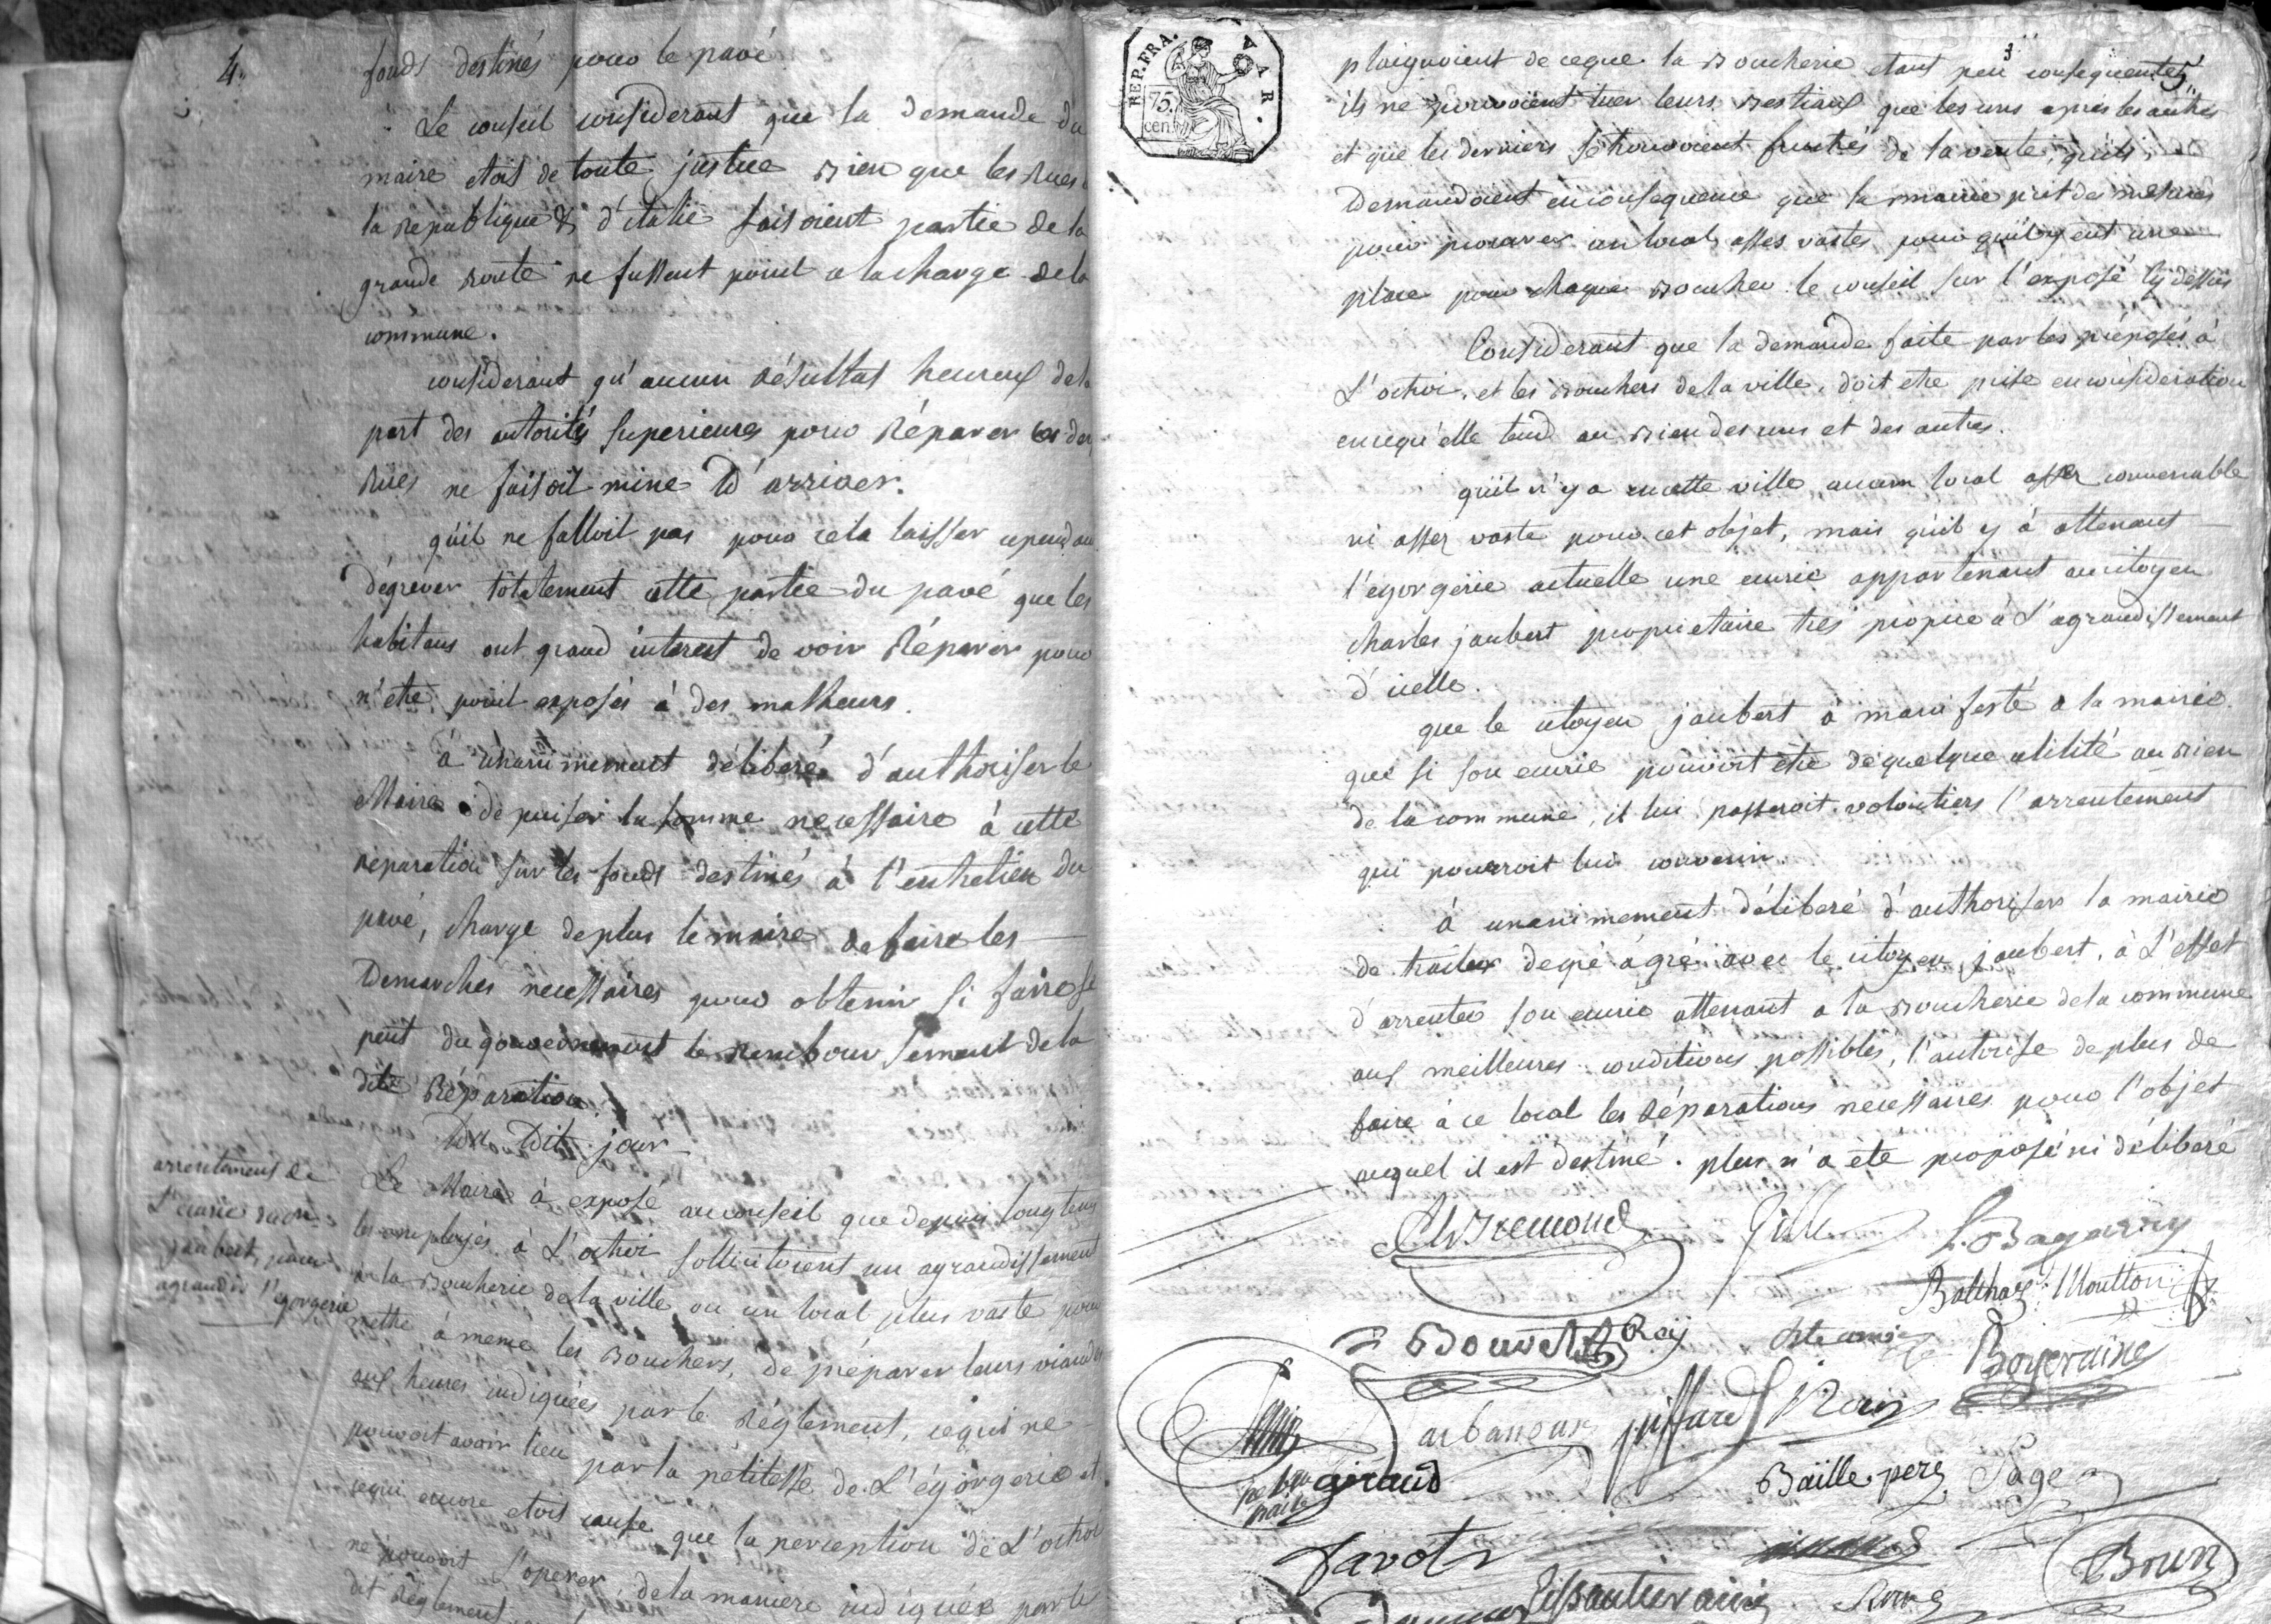 4.
fonds destinés pour le pavé.
Le conseil considerant que la demande du
maire etoit de toute justice bien que les rues
la republique & d'italie faisoient partie de la
grande route ne fussent point a la charge de la
commune.
considerant qu'aucun résultat heureux de la
part des autorités superieures pour réparer les
rues ne faisoit mine d'arriver.
qu'il ne falloit pas pour cela laisser cependant
dégrever totalement cette partie du pavé que les
habitans ont grand interest de voir réparer pour
n'etre point exposés à des malheurs.
à unanimement délibéré d'authoriser le
Maire de puiser la somme necessaire à cette
reparation sur les fonds destinés à l'entretien du
pavé, charge de plus le maire de faire les
demarches necessaires pour obtenir si faire se
peut du gouvernement le remboursement de la
dite réparation.
Du Dit jour
arrentement de
L'ecurie du cn
jaubert, pour
agrandir l'egorgerie
Le Maire à exposé au conseil que depuis longtems
les employés à L'octroi sollicitoient un agrandissement
a la boucherie de la ville ou un local plus vaste pour
mettre à meme les bouchers, de préparer leurs viandes
aux heures indiquées par le réglement, ce qui ne
pouvoit avoir lieu par la pétitesse de L'égorgerie et
ce qui encore etoit cause que la perception de L'octroi
ne pouvoit s'operer de la maniere indiquée par le
dit réglement
REP. FRA.
VAR.
75.
cen.
3
plaignoient de ceque la boucherie etant peu consequente,
ils ne pouvoient tuer leurs bestiaux que les uns apres les autres
et que les derniers se trouvoient frustrés de la vente, qu'ils
demandoient en consequence que la mairie prit des mesures
pour procurer un local assés vaste, pour qu'il y eut une
place pour chaque boucher. le conseil sur l'exposé cy dessus
Considerant que la demande faite par les préposés à
L'octroi, et les bouchers de la ville, doit etre prise en consideration
en cequ'elle tend au bien des uns et des autres.
qu'il n'y a en cette ville aucun local assez convenable
ni assez vaste pour cet objet, mais qu'il y à attenant
l'egorgerie actuelle une ecurie appartenant au citoyen
charles jaubert proprietaire très propice à L'agrandissement
d'icelle.
que le citoyen jaubert à manifesté a la mairie.
que si son ecurie pouvoit etre de quelque utilité au bien
de la commune, il lui passeroit volontiers l'arrentement
qui pourroit lui convenir
à unanimement délibéré d'authoriser la mairie
de traiter de gré à gré avec le citoyen jaubert, à L'effet
d'arrenter son ecurie attenant a la boucherie de la commune
aux meilleures conditions possibles, l'autorise de plus de
faire à ce local les réparations necessaires pour l'objet
auquel il est destiné. plus n'a été proposé ni délibéré
Gille L. Bagarry
Balthaz. Moutton
Bouvet Rey Boyer aine
arbanoux jiffard Roux
giraud Baille pere Page
favoty Brun